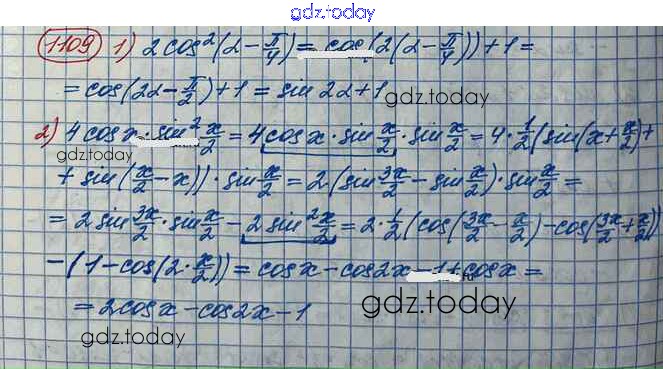 gdz.today
1109 1) 2cos²(α - π/4) = cos(2(α - π/4)) + 1 =
= cos(2α - π/2) + 1 = sin 2α + 1 gdz.today
2) 4cosx · sin² x/2 = 4cosx · sin x/2 · sin x/2 = 4 · 1/2 (sin(x + x/2) +
gdz.today
+ sin(x/2 - x)) · sin x/2 = 2(sin 3x/2 - sin x/2) · sin x/2 =
= 2sin 3x/2 · sin x/2 - 2sin² x/2 = 2 · 1/2 (cos(3x/2 - x/2) - cos(3x/2 + x/2))
- (1 - cos(2 · x/2)) = cosx - cos2x - 1 + cosx =
= 2cosx - cos2x - 1
gdz.today
gdz.today